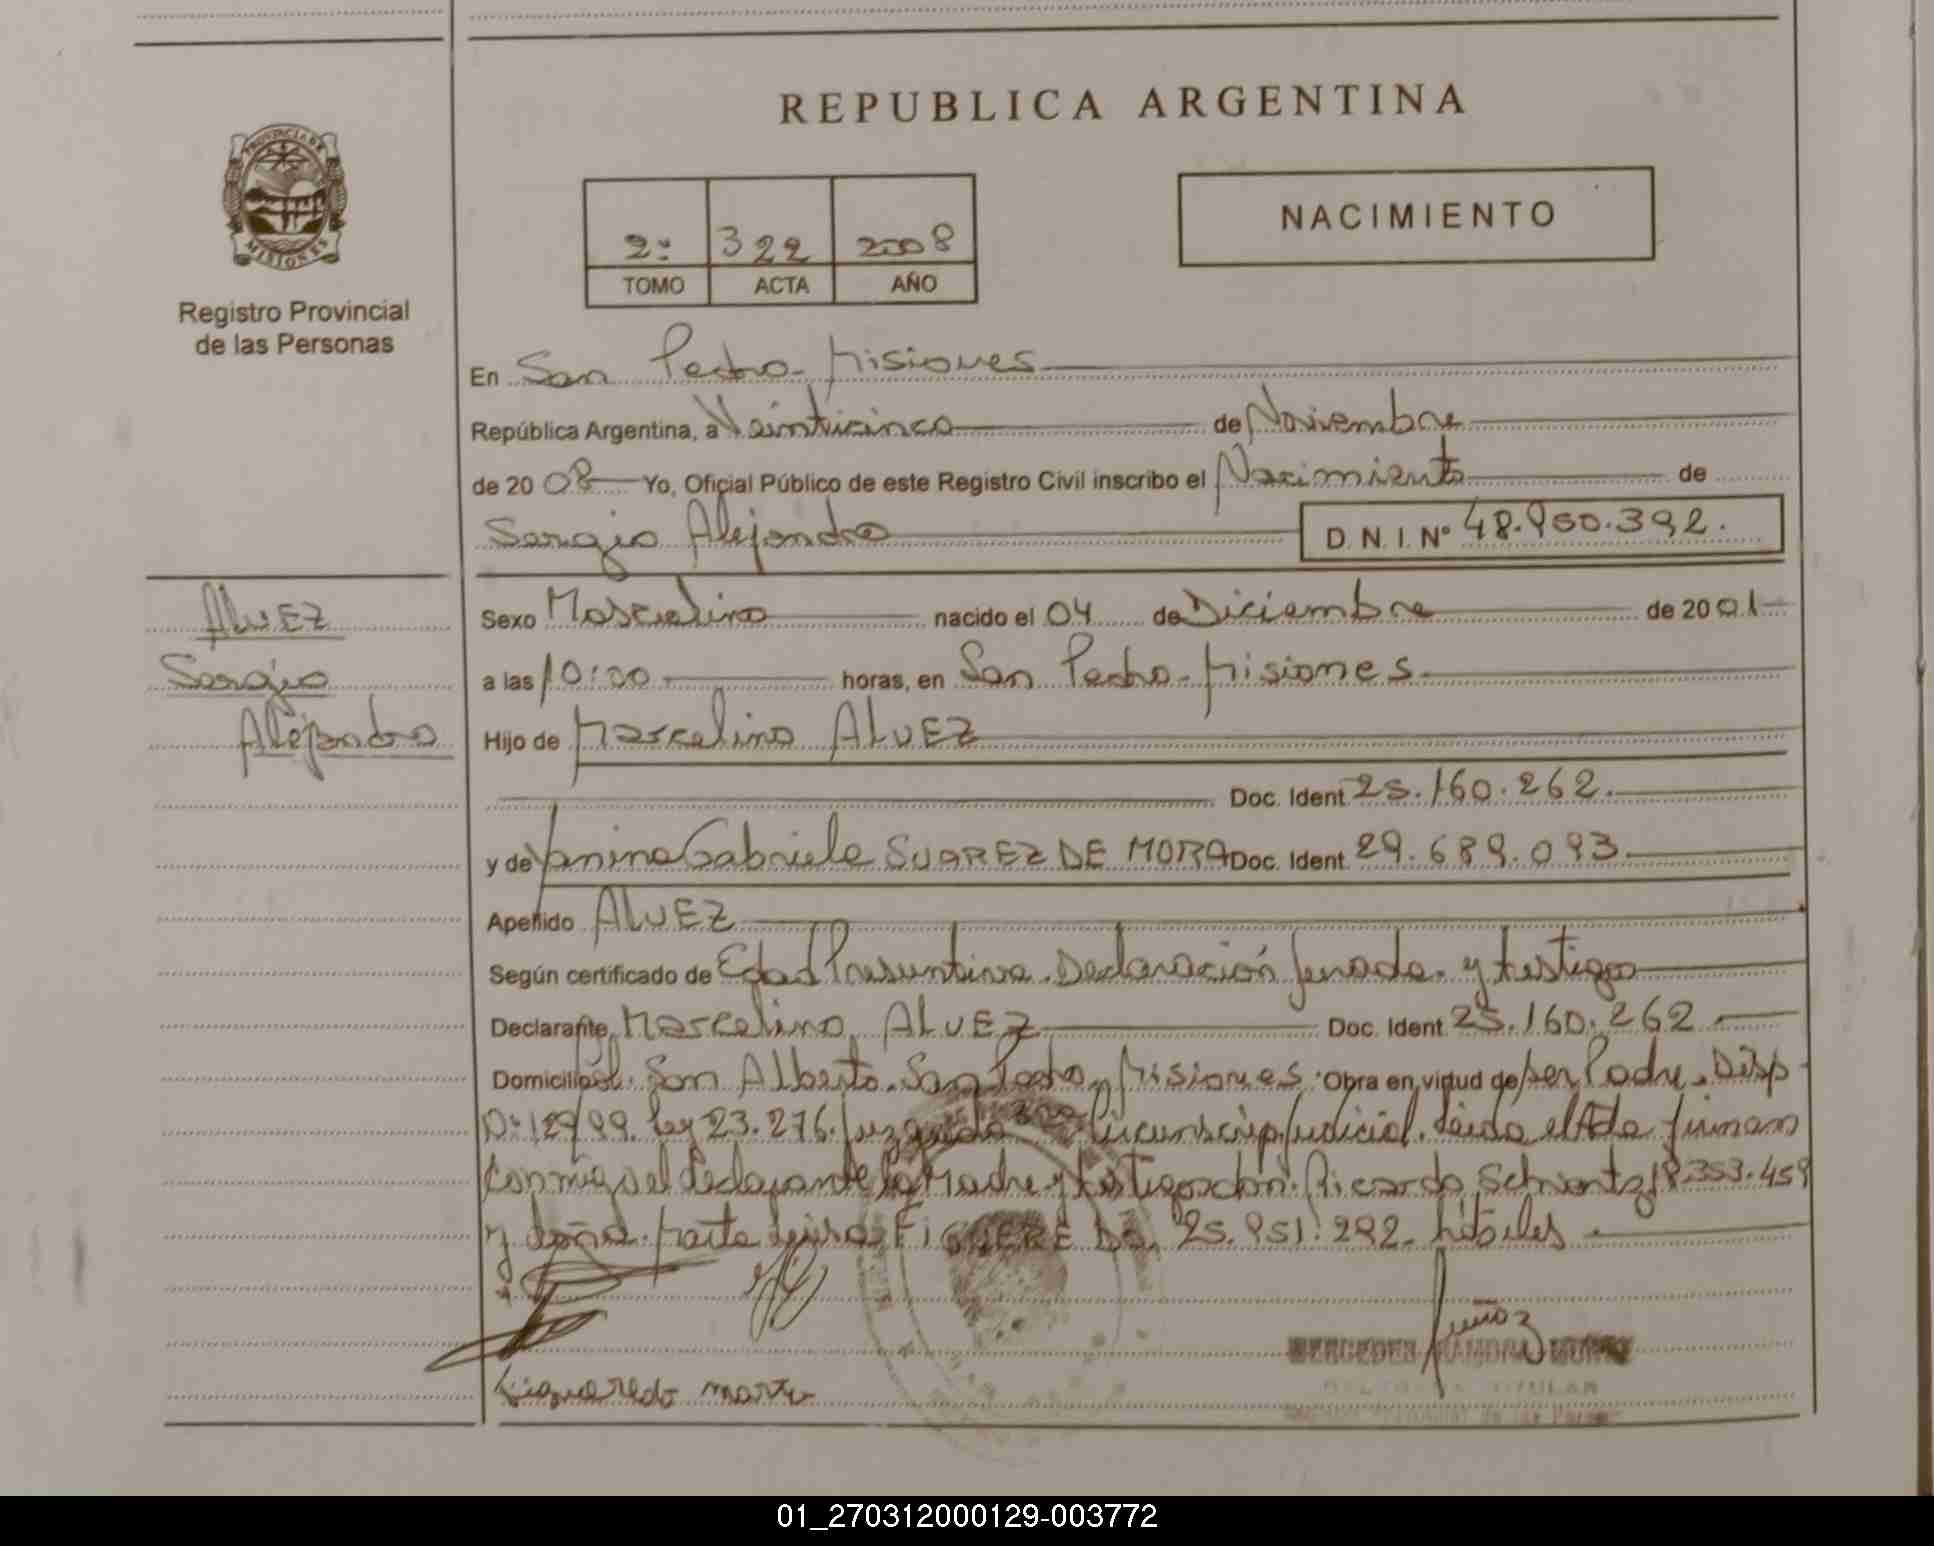 REPUBLICA ARGENTINA
PROVINCIA DE
MISIONES
Registro Provincial
de las Personas
2º 322 2008
TOMO ACTA AÑO
NACIMIENTO
En San Pedro - Misiones
República Argentina, a Veinticinco de Noviembre
de 20 08 Yo, Oficial Público de este Registro Civil inscribo el Nacimiento de
Sergio Alejandro D.N.I. Nº 48.950.392.
ALVEZ
Sergio
Alejandro
Sexo Masculino nacido el 04 de Diciembre de 2001
a las 10:00 horas, en San Pedro - Misiones
Hijo de Marcelino ALVEZ
Doc. Ident 25.160.262.
y de Yanina Gabriela SUAREZ DE MORA Doc. Ident. 29.689.093
Apellido ALVEZ
Según certificado de Edad Presuntiva. Declaración Jurada. y testigos
Declarante Marcelino ALVEZ Doc. Ident 25.160.262
Domicilio San Alberto. San Pedro, Misiones. Obra en virtud de ser Padre. Disp
Nº 129/99. Ley 23.276. Juzgado Circunscrip. Judicial. Leida el Acta firman
conmigo el declarante la Madre y testigos don. Ricardo 18.353.459
y doña. Marta Luisa FIGUEREDO, 25.951.292. hábiles
Muñoz
MERCEDES RAMONA MUÑOZ
TITULAR
Figueredo marta
01_270312000129-003772